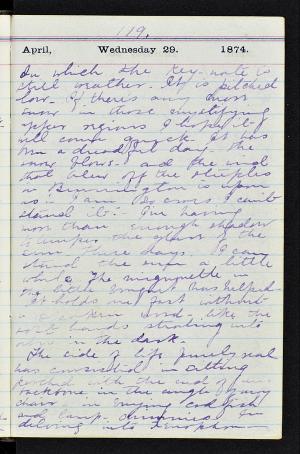 119.
April, Wednesday 29. 1874.
In which the key-note is
still weather. It is pitched
low. If there's any more
snow in those
upper regions I hope it
will come quick. It has
been a dreadful day. the
snow blows. and the wind
that blew off the steeples
in Bennington is upon
us. I am I can't
stand it. I'm having
more than enough shadow
to temper the glare of the
sun these days. I can
stand the sun a little
while. The mignonette in
has helped
It holds me fast without
a word. like the
hands strating into
in the dark.
The side of life purely real
has consisted in sitting
with the end of
backbone in the angle of my
chair in cod fish
and lamp chimneys. I'm
delving into Xenophon